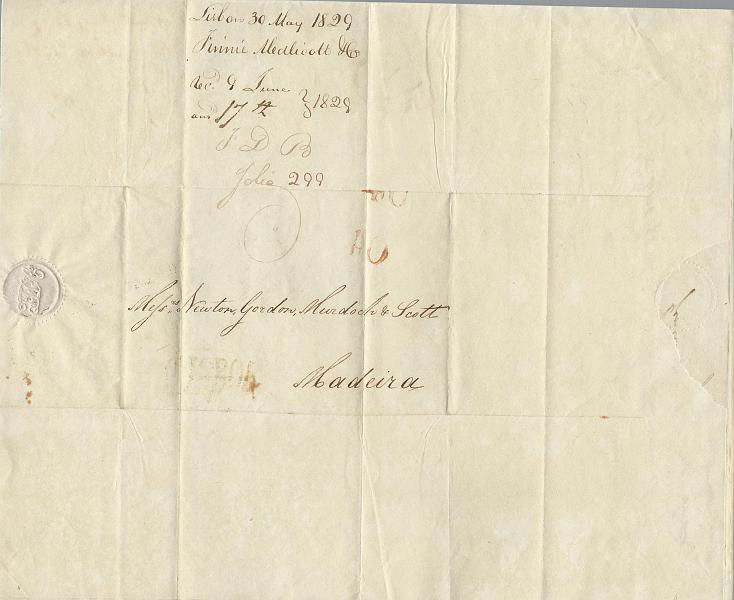 Lisbon 30 May 1829
Finnie Medlicott & Co
Rec.d 9 June
and 17th } 1829
F D B
Folio 299
Mess.rs Newton, Gordon, Murdoch & Scott
Madeira